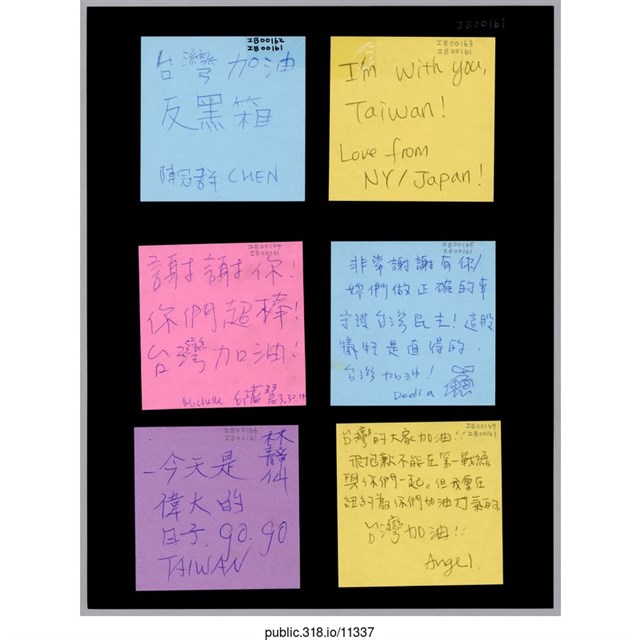 IB00161
IB00162
IB00161
台灣加油
反黑箱
陳冠群 CHEN
IB00163
IB00161
I'm with you,
Taiwan!
Love from
NY/Japan!
IB00164
IB00161
謝謝你!
你們超棒!
台灣加油!
Michelle
IB00165
IB00161
非常謝謝有你/
妳們做正確的事
守護台灣民主!這般
犧牲是值得的.
台灣加油!
IB00166
IB00161
林靜仙
今天是
偉大的
日子. go. go
TAIWAN
IB00167
IB00161
台灣的大家加油!!
很抱歉不能在第一戰線
與你們一起。但我會在
紐約為你們加油打氣的
台灣加油!!
Angel.
public.318.io/11337